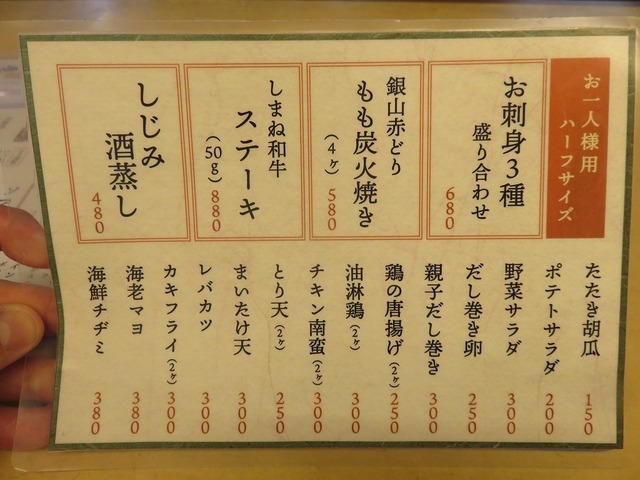 お一人様用
ハーフサイズ
お刺身3種
盛り合わせ
680
銀山赤どり
もも炭火焼き
(4ヶ)
580
しまね和牛
ステーキ
(50g)
880
しじみ
酒蒸し
480
たたき胡瓜 150
ポテトサラダ 200
野菜サラダ 300
だし巻き卵 250
親子だし巻き 300
鶏の唐揚げ(2ヶ) 250
油淋鶏(2ヶ) 300
チキン南蛮(2ヶ) 300
とり天(2ヶ) 250
まいたけ天 300
レバカツ 300
カキフライ(2ヶ) 300
海老マヨ 380
海鮮チヂミ 380